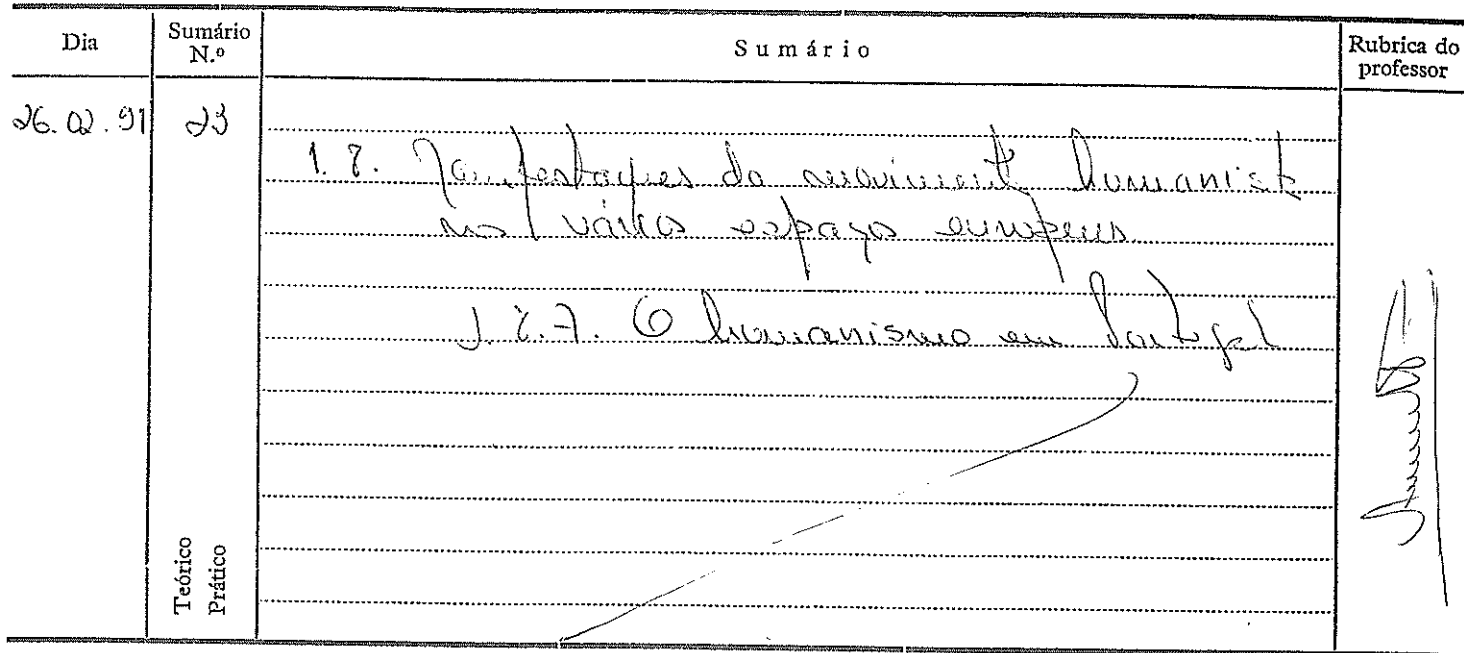 Dia
Sumário N.º
Sumário
Rubrica do professor
26.02.91
23
1.8. Manifestações do movimento humanista
nos vários espaços europeus
1.8.7. O humanismo em Portugal
Teórico
Prático